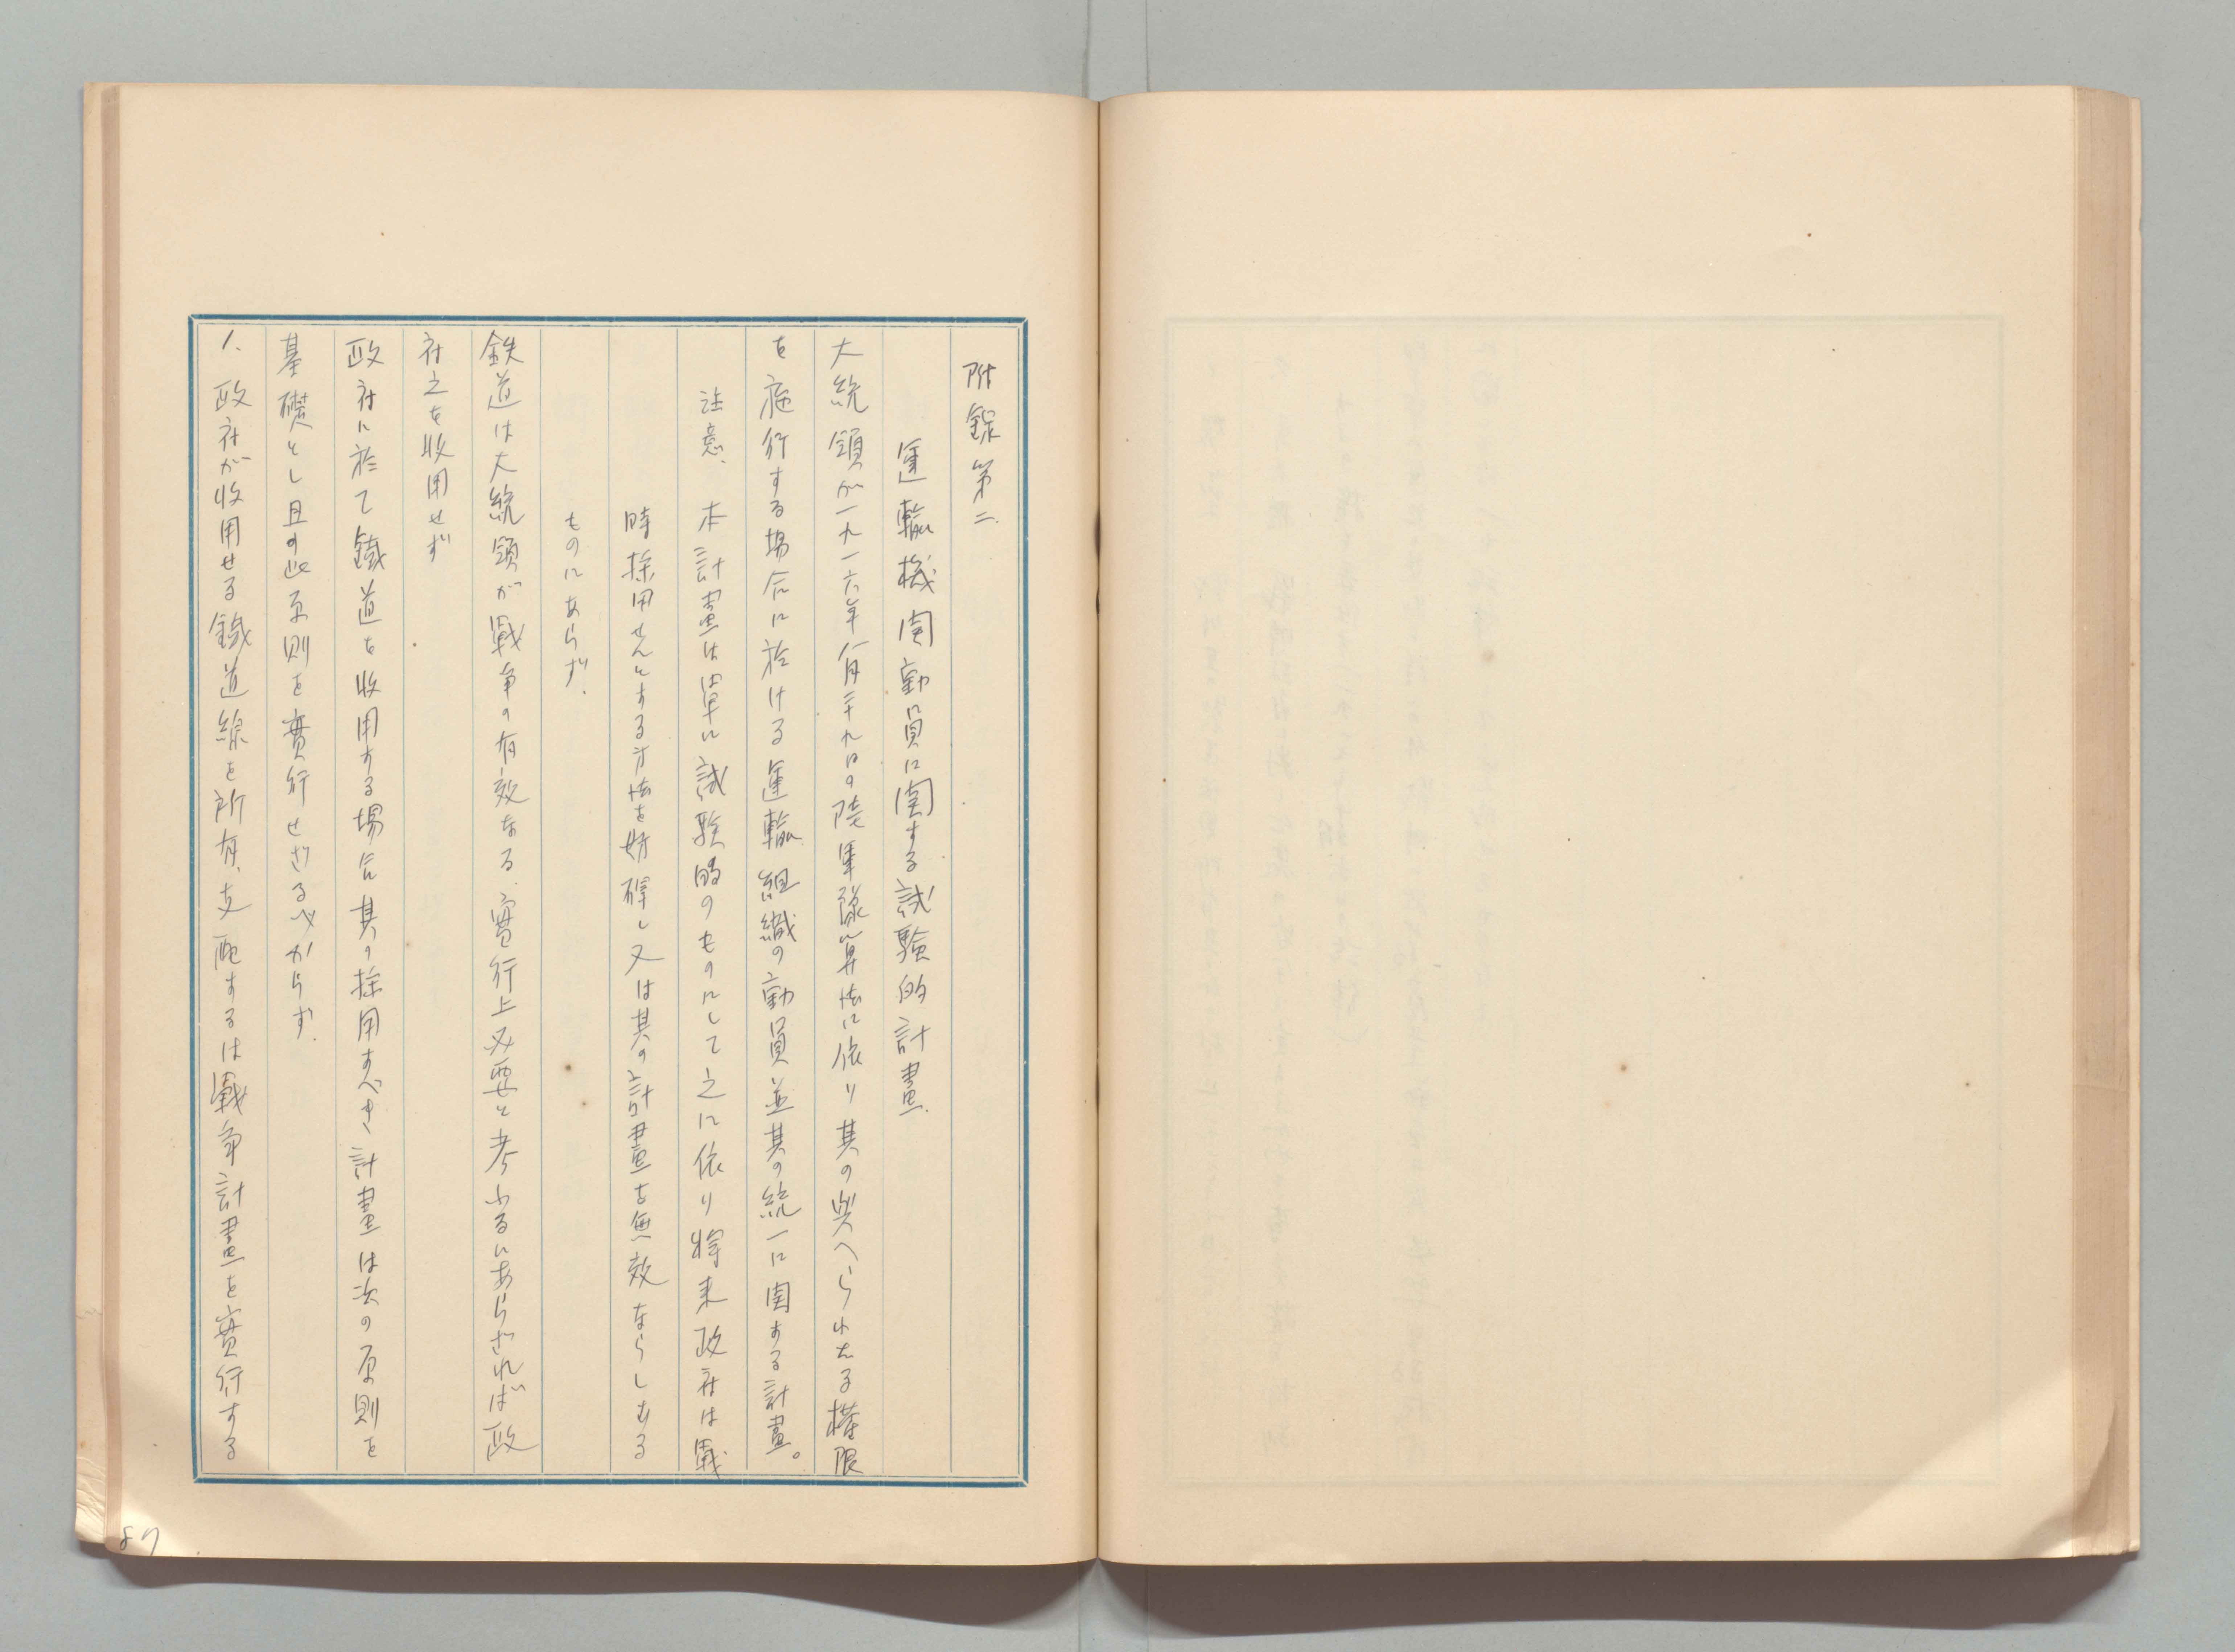 附録第二.
運輸機関動員に関する試験的計畫.
大統領が一九一六年八月二十九日の陸軍豫算法に依り其の與へられたる權限
を施行する場合に於ける運輸組織の動員並其の統一に関する計畫。
注意、本計畫は単に試験的のものにして之に依り將来政府は戰
時採用せんとする方法を妨碍し又は其の計畫を無效ならしむる
ものにあらず.
鉄道は大統領が戰争の有效なる實行上必要と考ふるにあらざれば政
府之を收用せず
政府に於て鐵道を收用する場合其の採用すべき計畫は次の原則を
基礎とし且つ此原則を實行せざるべからず.
1、政府が收用せる鐵道線を所有、支配するは戰争計畫を實行する
87